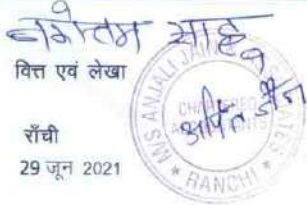 नरोत्तम साहू
वित्त एवं लेखा
राँची
29 जून 2021
M/S ANJALI JAIN ASSOCIATES
CHARTERED
ACCOUNTANTS
RANCHI
अर्पित जैन